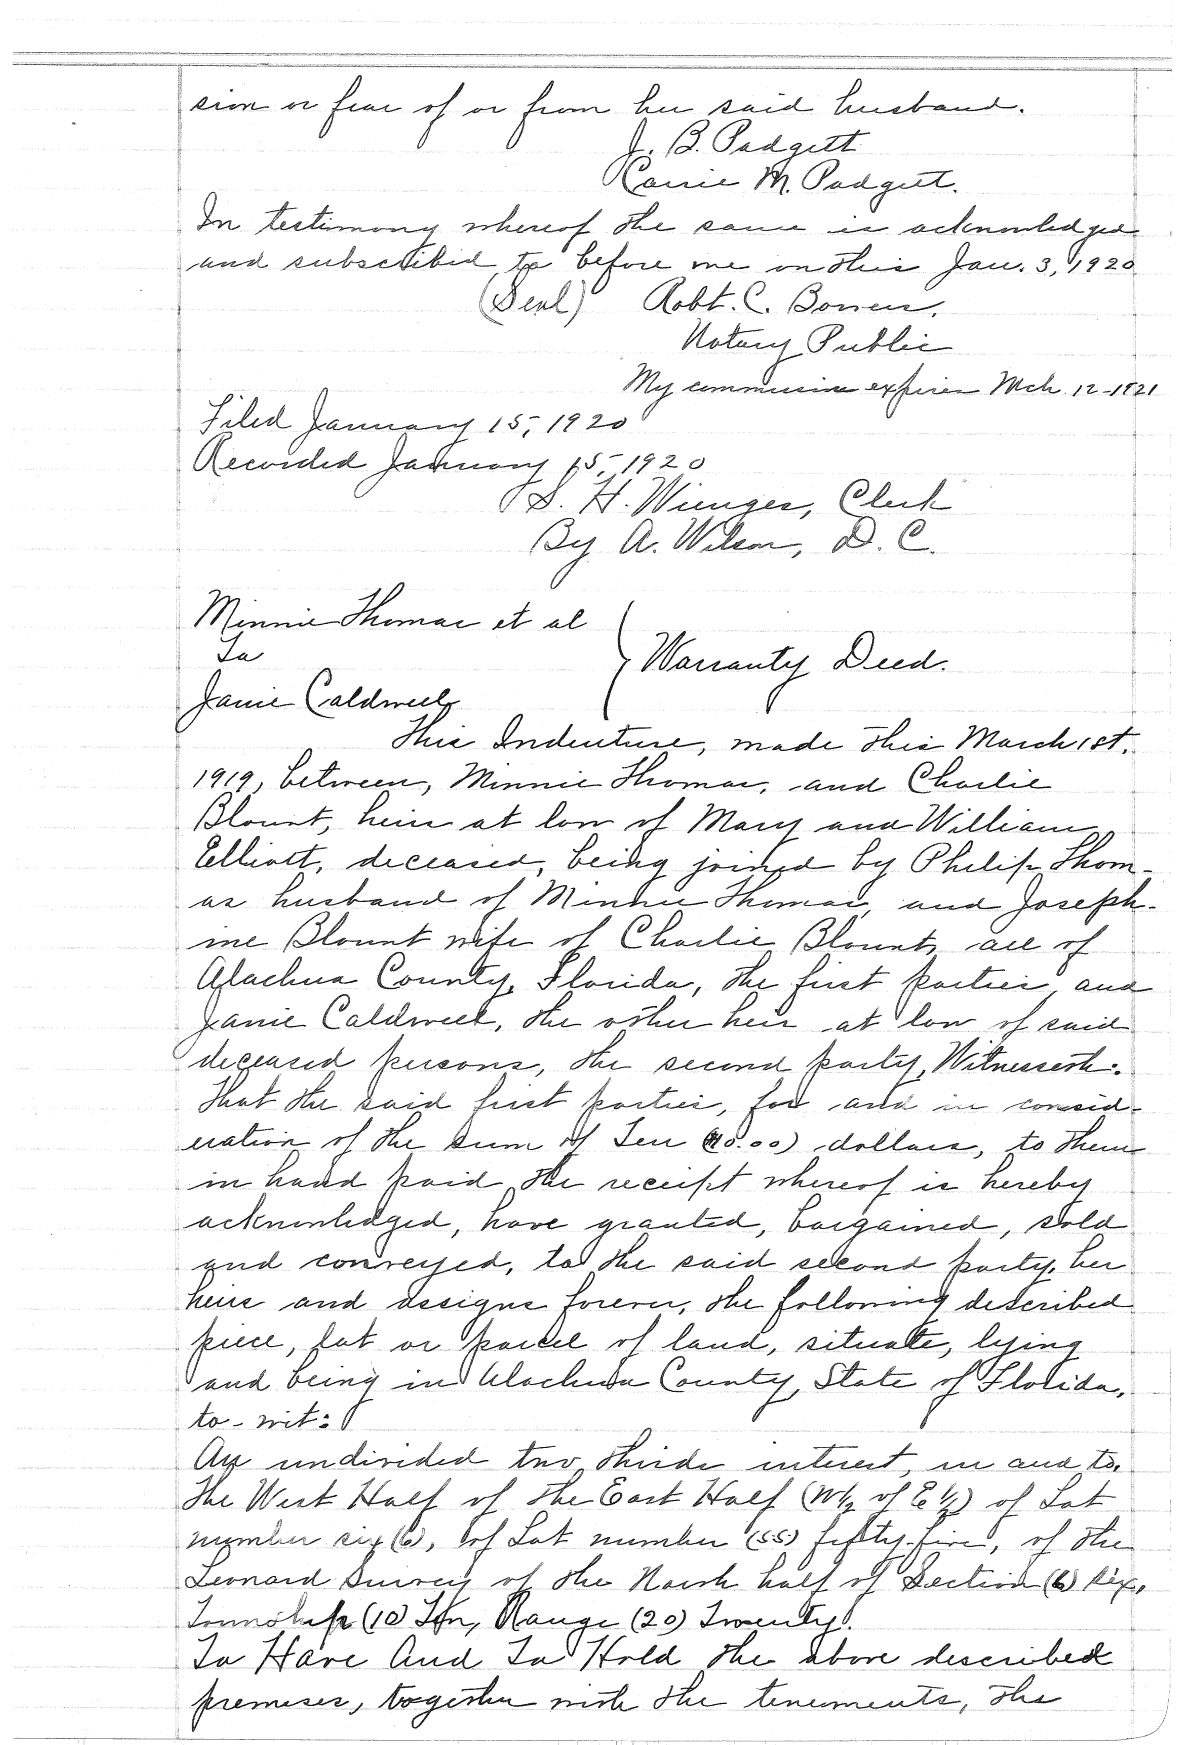 sion or fear of or from her said husband.
J. B. Padgett
Carrie M. Padgett.
In testimony whereof the same is acknowledged
and subscribed to before me on this Jan. 3, 1920
(Seal) Robt. C. Bowers,
Notary Public
My commission expires Mch 12-1921
Filed January 15, 1920
Recorded January 15, 1920
S. H. Wienges, Clerk
By A. Wilson, D. C.
Minnie Thomas et al
To
Warranty Deed.
Janie Caldwell
This Indenture, made this March 1st.
1919, between, Minnie Thomas, and Charlie
Blount, heirs at law of Mary and William
Elliott, deceased, being joined by Philip Thom-
as husband of Minnie Thomas, and Joseph-
ine Blount wife of Charlie Blount, all of
Alachua County, Florida, the first parties, and
Janie Caldwell, the other heir at law of said
deceased persons, the second party, Witnesseth:
That the said first parties, for and in consid-
eration of the sum of Ten ($10.00) dollars, to them
in hand paid, the receipt whereof is hereby
acknowledged, have granted, bargained, sold
and conveyed, to the said second party, her
heirs and assigns forever, the following described
piece, lot or parcel of land, situate, lying
and being in Alachua County, State of Florida,
to-wit:
An undivided two thirds interest, in and to,
the West Half of the East Half (W½ of E½) of Lot
number six (6), of Lot number (55) fifty five, of the
Leonard Survey of the North half of Section (6) Six,
Township (10) Ten, Range (20) Twenty.
To Have And To Hold the above described
premises, together with the tenements, the